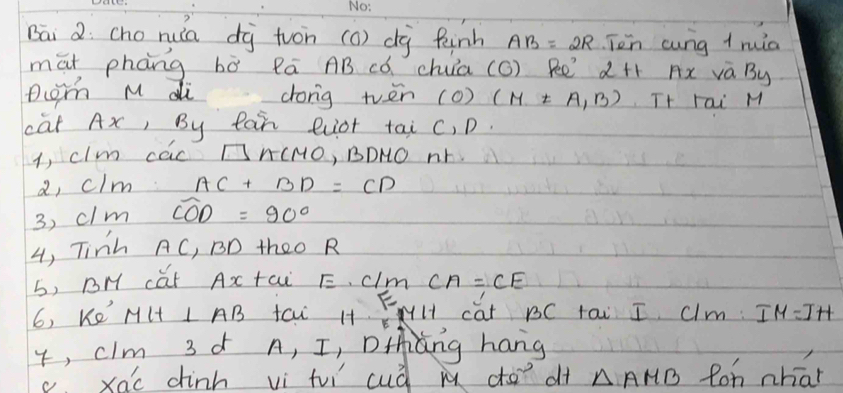 No:
Bài 2. Cho nửa đg tròn (O) đg kính AB = 2R. Trên cùng 1 nửa
mặt phẳng bờ là AB có chứa (O) kẻ 2tt Ax và By
Điểm M di động trên (O) (M ≠ A, B). Tt tại M
cắt Ax, By lần lượt tại C, D.
1, c/m các □ ACMO, BDMO nt
2, c/m AC + BD = CD
3, c/m COD = 90°
4, Tính AC, BD theo R
5, BM cắt Ax tại E. c/m CA = CE
6, Kẻ MH ⊥ AB tại H. MH cắt BC tại I. C/m IM = IH
7, c/m 3 đ A, I, D thẳng hàng
8, xác định vị trí của M để dt △AMB lớn nhất